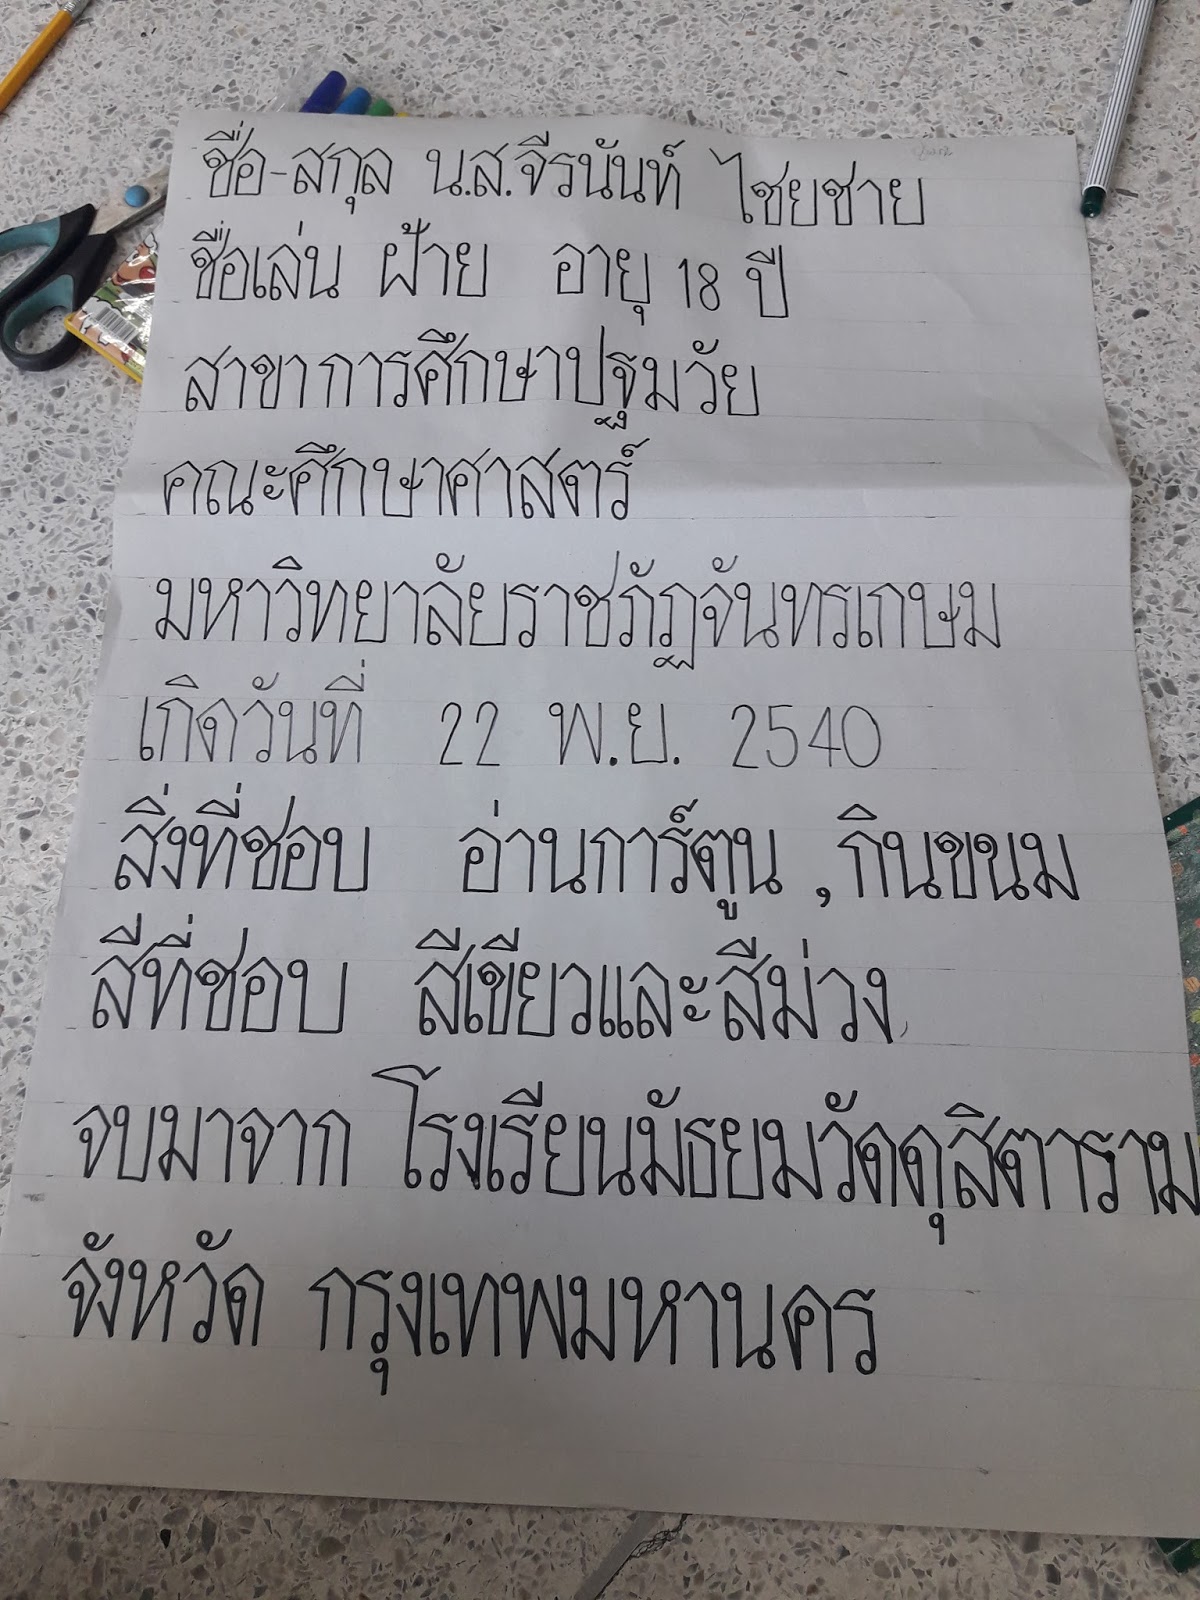 ชื่อ-สกุล น.ส.จีรนันท์ ไชยชาย
ชื่อเล่น ฝ้าย อายุ 18 ปี
สาขาการศึกษาปฐมวัย
คณะศึกษาศาสตร์
มหาวิทยาลัยราชภัฏจันทรเกษม
เกิดวันที่ 22 พ.ย. 2540
สิ่งที่ชอบ อ่านการ์ตูน , กินขนม
สีที่ชอบ สีเขียวและสีม่วง
จบมาจาก โรงเรียนมัธยมวัดดุสิตาราม
จังหวัด กรุงเทพมหานคร